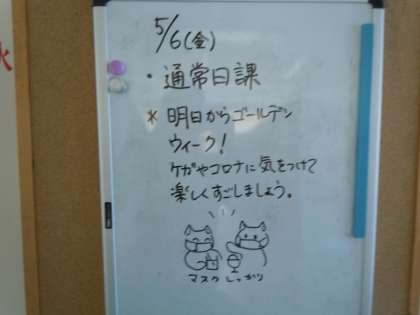 火
5/6(金)
・通常日課
* 明日からゴールデン
ウィーク!
ケガやコロナに気をつけて
楽しくすごしましょう。
マスクしっかり